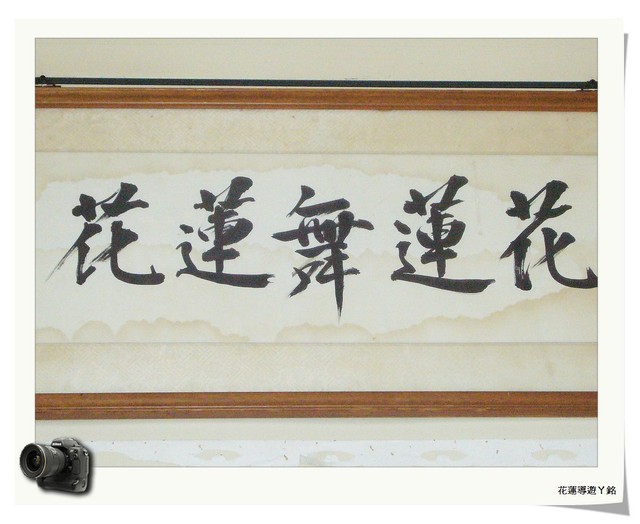 花蓮舞蓮花
花蓮導遊ㄚ銘